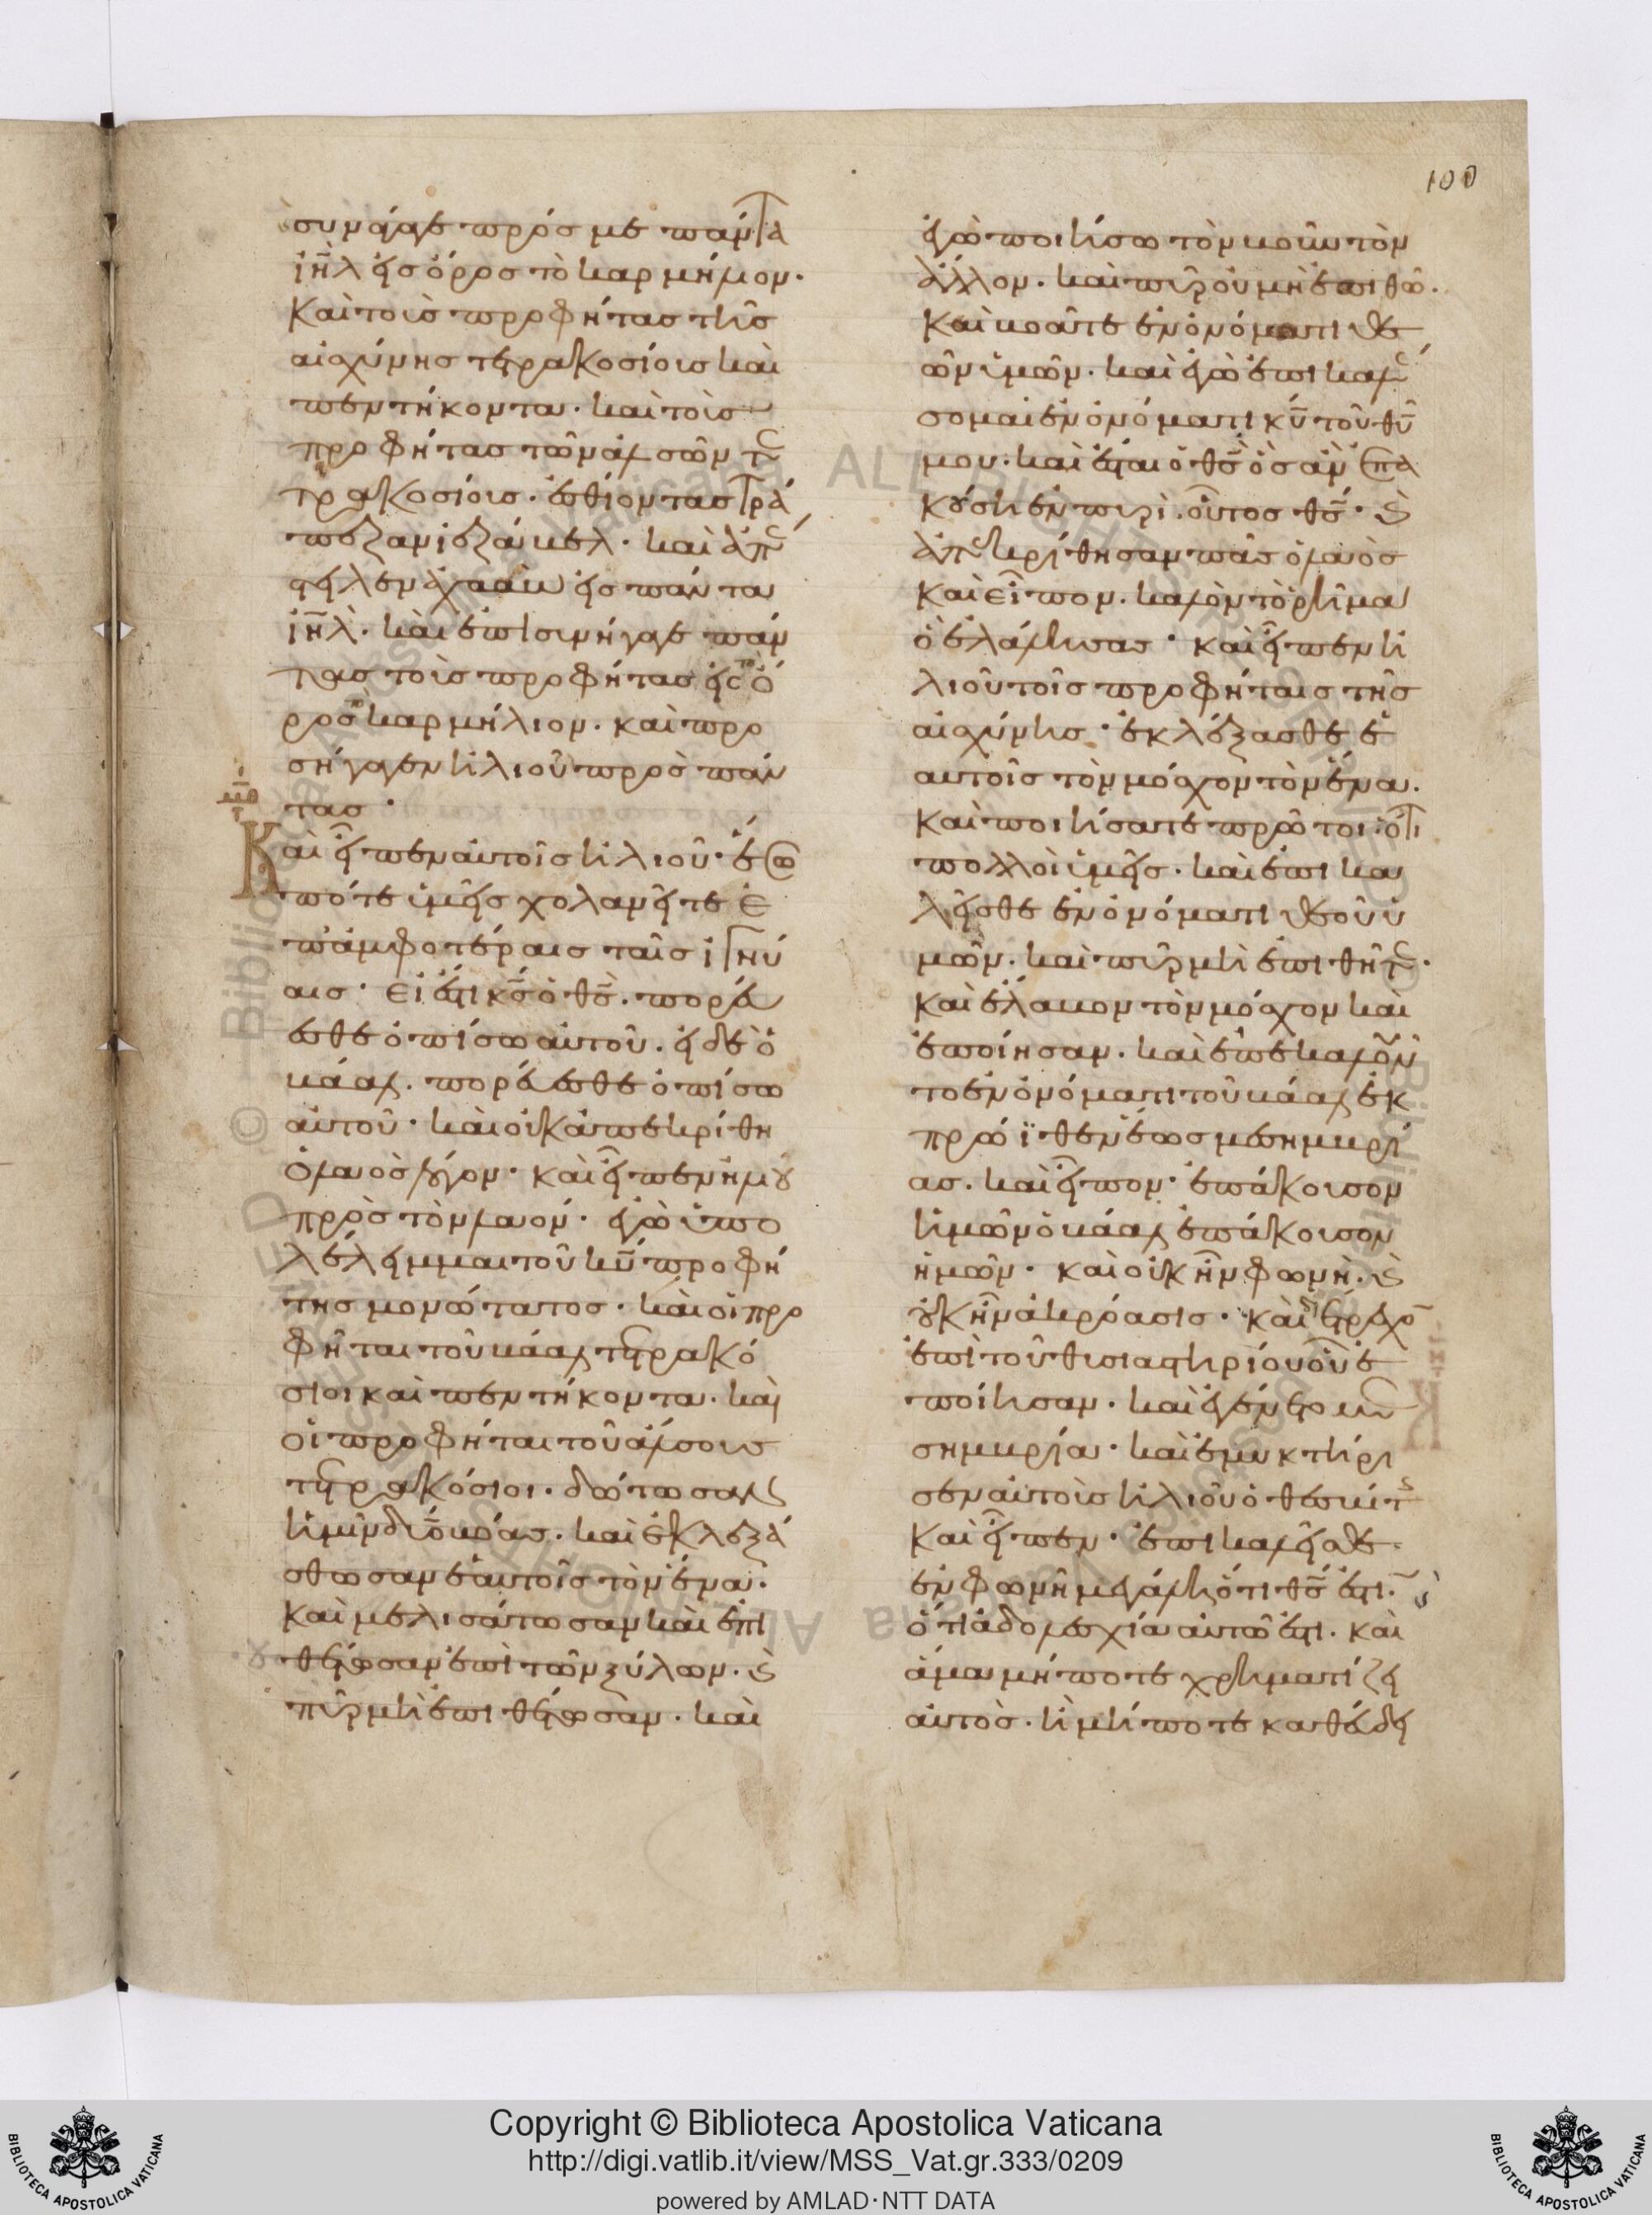 100
συνάγαγε πρός με πάντα
ι̅η̅λ εἰς ὄρος τὸ καρμήλιον.
Καὶ τοὺς προφήτας τῆς
αἰσχύνης τετρακοσίους καὶ
πεντήκοντα. καὶ τοὺς
προφήτας τῶν ἀλσῶν τε
τρακοσίους. ἐσθίοντας τρά
πεζαν ἰεζάβελ. καὶ ἀπέ
στειλεν ἀχαὰβ εἰς πάντα
ι̅η̅λ. καὶ ἐπισυνήγαγε πάν
τας τοὺς προφήτας εἰς τὸ ὄ
ρος τὸ καρμήλιον. καὶ προ
σήγαγεν ἠλιοῦ πρὸς πάν
τας.
Καὶ εἶπεν αὐτοῖς ἠλιοῦ. ἕως
πότε ὑμεῖς χολανεῖτε ἐ
π' ἀμφοτέραις ταῖς ἰγνύ
αις. εἰ ἔστι κ̅ς̅ ὁ θ̅ς̅. πορεύ
εσθε ὀπίσω αὐτοῦ. εἰ δὲ ὁ
βάαλ. πορεύεσθε ὀπίσω
αὐτοῦ. καὶ οὐκ ἀπεκρίθη
ὁ λαὸς λόγον. καὶ εἶπεν ἠλιοῦ
πρὸς τὸν λαόν. ἐγὼ ὑπο
λέλειμμαι τοῦ κ̅υ̅ προφή
της μονώτατος. καὶ οἱ προ
φῆται τοῦ βάαλ τετρακό
σιοι καὶ πεντήκοντα. καὶ
οἱ προφῆται τοῦ ἄλσους
τετρακόσιοι. δότωσαν
ἡμῖν δύο βόας. καὶ ἐκλεξά
σθωσαν ἑαυτοῖς τὸν ἕνα.
καὶ μελισάτωσαν καὶ ἐπι
θέτωσαν ἐπὶ τῶν ξύλων. καὶ
πῦρ μὴ ἐπιθέτωσαν. καὶ
ἐγὼ ποιήσω τὸν βοῦν τὸν
ἄλλον. καὶ πῦρ οὐ μὴ ἐπιθῶ.
Καὶ βοᾶτε ἐν ὀνόματι θε
ῶν ὑμῶν. καὶ ἐγὼ ἐπικαλέ
σομαι ἐν ὀνόματι κ̅υ̅ τοῦ θ̅υ̅
μου. καὶ ἔσται ὁ θ̅ς̅ ὃς ἂν ἐπα
κούσῃ ἐν πυρί. οὗτος θ̅ς̅. καὶ
ἀπεκρίθησαν πᾶς ὁ λαὸς
καὶ εἶπον. καλὸν τὸ ῥῆμα
ὃ ἐλάλησας. καὶ εἶπεν ἠ
λιοῦ τοῖς προφήταις τῆς
αἰσχύνης. ἐκλέξασθε ἑ
αυτοῖς τὸν μόσχον τὸν ἕνα.
καὶ ποιήσατε πρῶτοι. ὅτι
πολλοὶ ὑμεῖς. καὶ ἐπικα
λεῖσθε ἐν ὀνόματι θεοῦ ὑ
μῶν. καὶ πῦρ μὴ ἐπιθῆτε.
καὶ ἔλαβον τὸν μόσχον καὶ
ἐποίησαν. καὶ ἐπεκαλοῦν
το ἐν ὀνόματι τοῦ βάαλ ἐκ
πρωΐθεν ἕως μεσημβρί
ας. καὶ εἶπον. ἐπάκουσον
ἡμῶν ὁ βάαλ ἐπάκουσον
ἡμῶν. καὶ οὐκ ἦν φωνή. καὶ
οὐκ ἦν ἀκρόασις. καὶ διέτρεχον
ἐπὶ τοῦ θυσιαστηρίου οὗ ἐ
ποίησαν. καὶ ἐγένετο με
σημβρία. καὶ ἐμυκτήρι
σεν αὐτοὺς ἠλιοῦ ὁ θεσβίτης
καὶ εἶπεν. ἐπικαλεῖσθε
ἐν φωνῇ μεγάλῃ ὅτι θ̅ς̅ ἐστι.
ὅτι ἀδολεσχία αὐτῷ ἐστι. καὶ
ἅμα μήποτε χρηματίζει
αὐτός. ἢ μήποτε καθεύδει
Copyright © Biblioteca Apostolica Vaticana
http://digi.vatlib.it/view/MSS_Vat.gr.333/0209
powered by AMLAD·NTT DATA
BIBLIOTECA APOSTOLICA VATICANA
BIBLIOTECA APOSTOLICA VATICANA